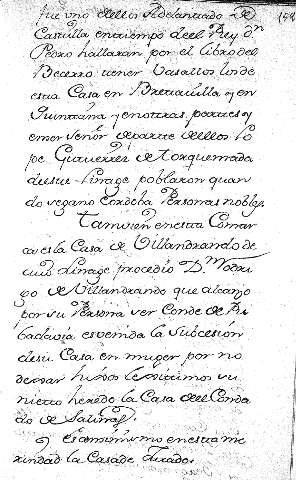 fue uno dellos Adelantado de
Castilla en tiempo del Rey dn
Pedro hallaran por el libro del
Becerro tener Vasallos desde
esta Casa en Bretavilla y en
Quintana y en otras partes y
emer Señor de parte dellos Lo
pe Gutierres de Torquemada
deste Linage poblaron quan
do vegano Cordoba Personas nobles
Tamvien en esta Comar
ca es la Casa de Villandrando de
cuio Linage procedio Dn Rodri
go de Villandrando que alcanzo
por su Persona ser Conde de Ri
badavia es venida la Subcesion
desu Casa en muger por no
dexar hixos Lexitimos su
nieto heredo la Casa del Conda
do de Salinas
y es asimismo en esta me
rindad la Casa de Jurado